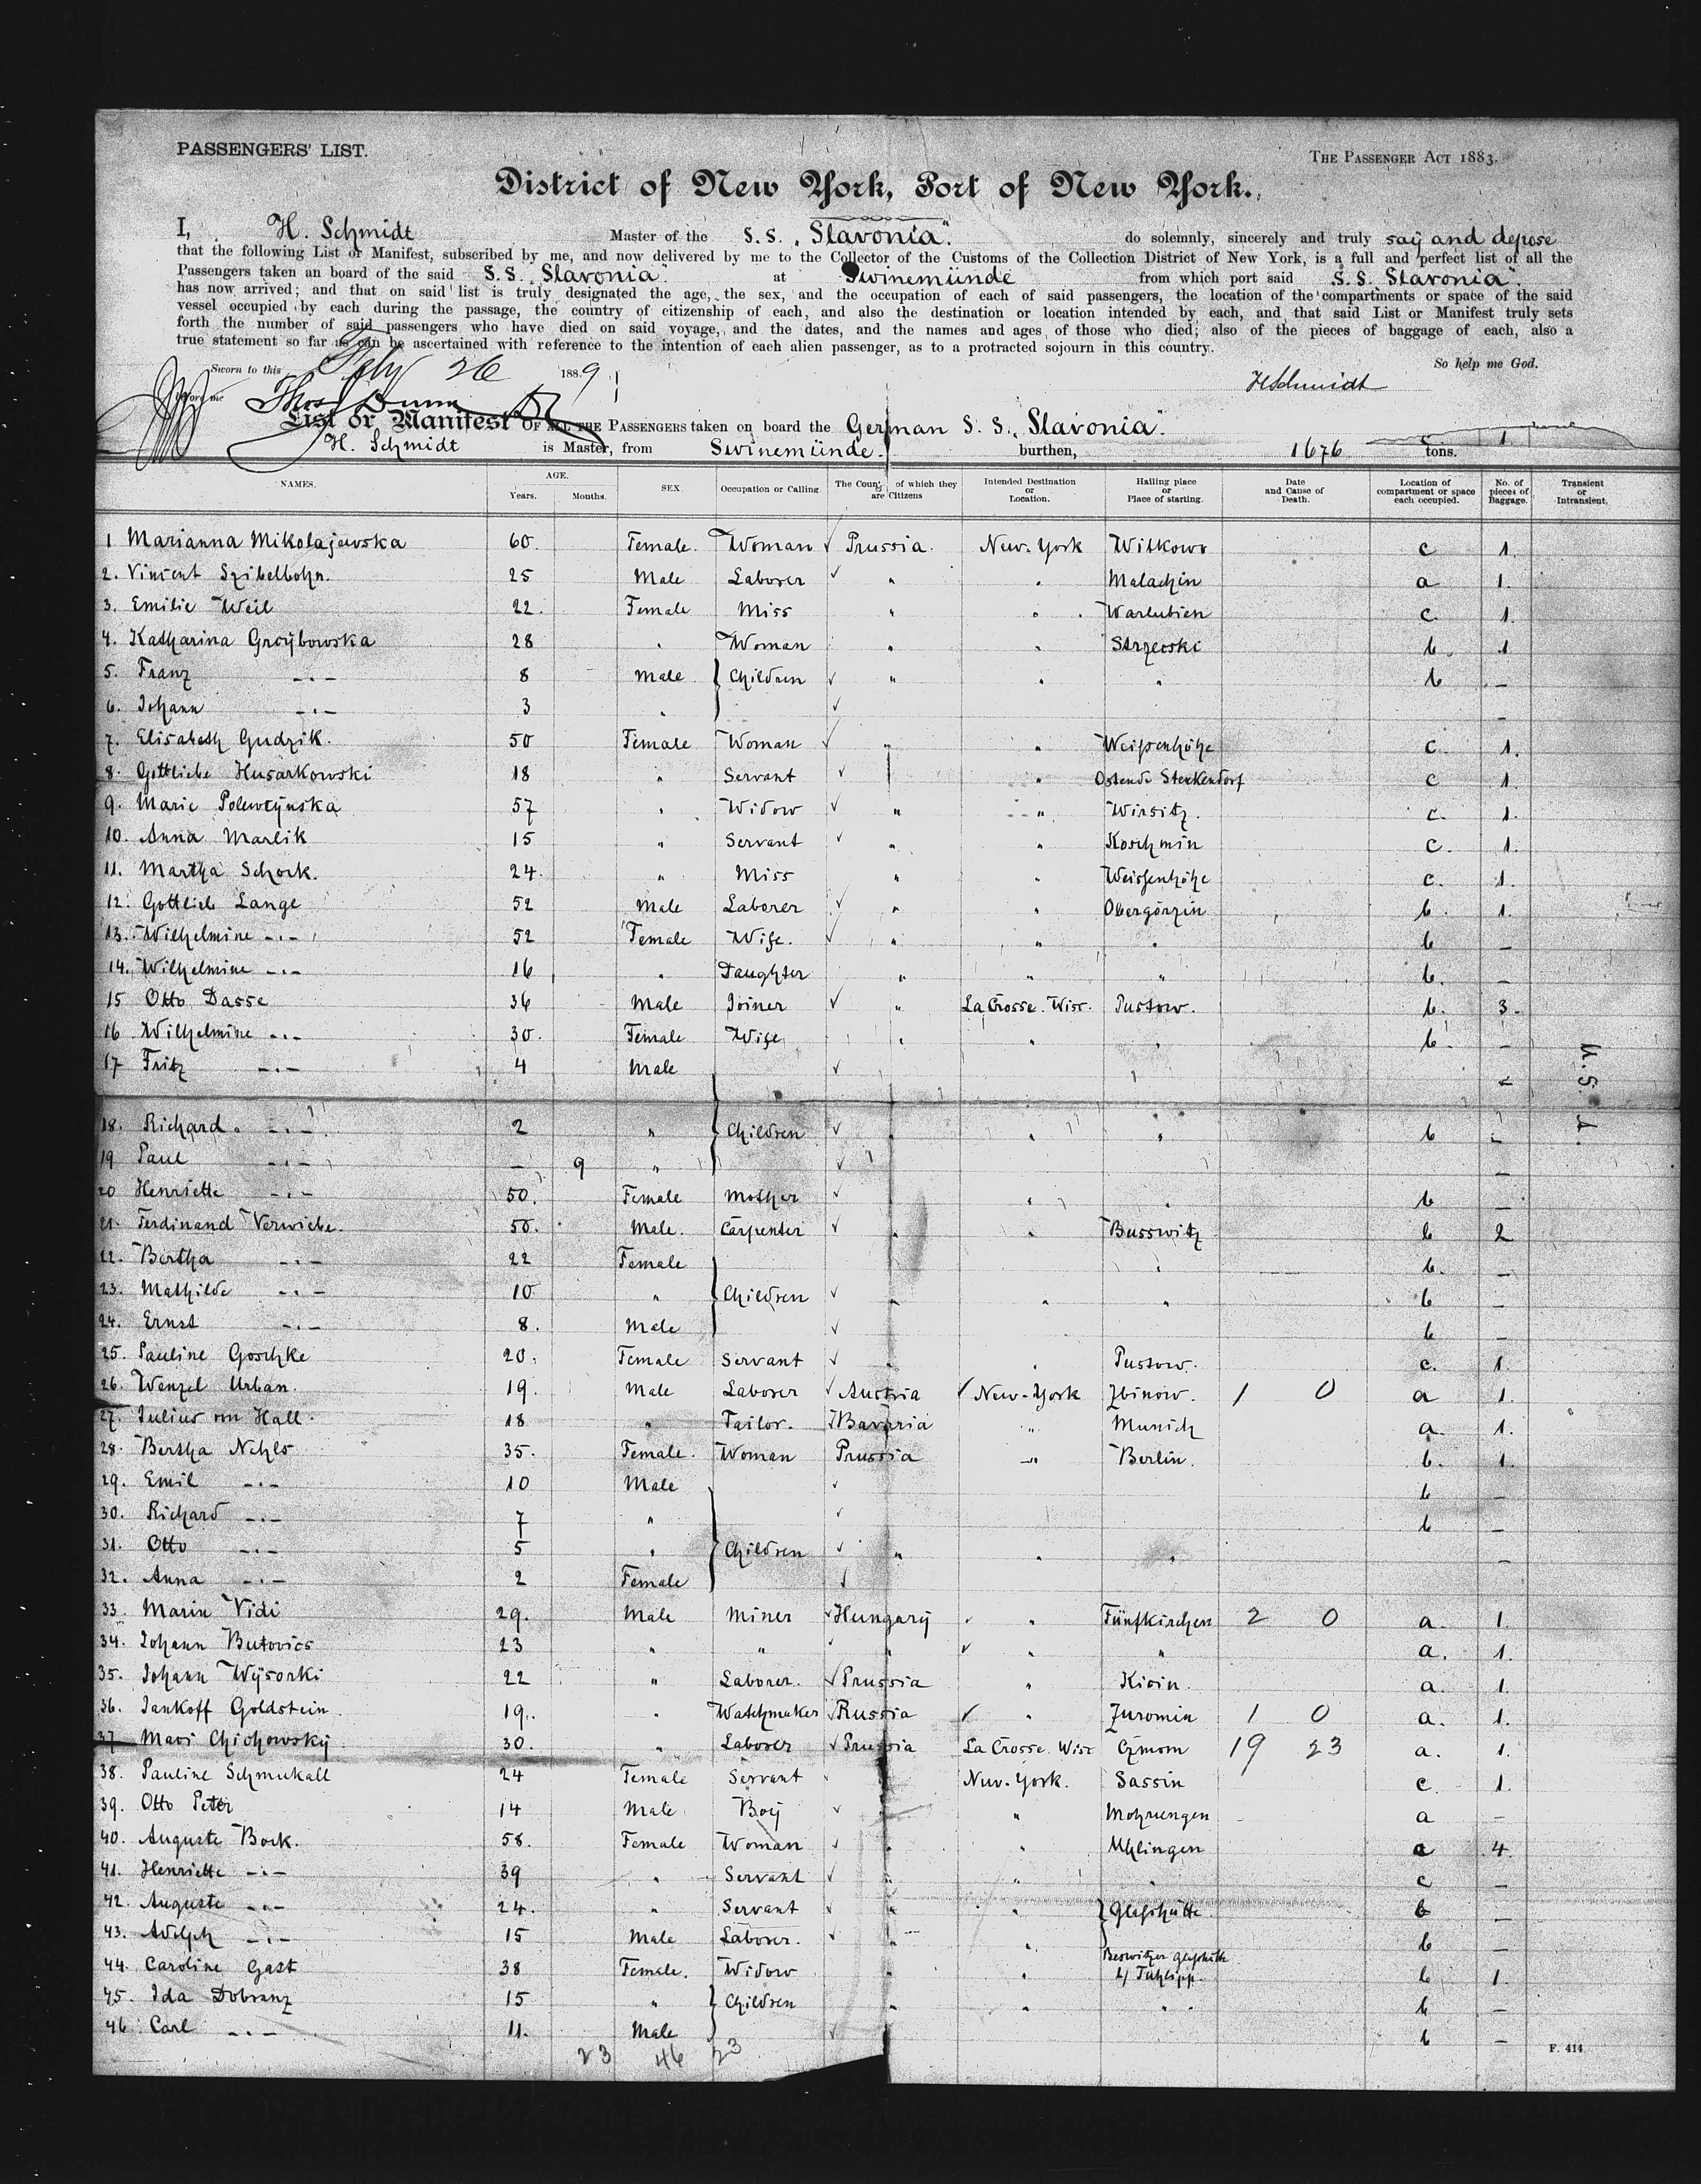 PASSENGERS' LIST.
THE PASSENGER ACT 1883.
District of New York, Port of New York.
I, H. Schmidt Master of the S.S. „Slavonia". do solemnly, sincerely and truly say and depose
that the following List or Manifest, subscribed by me, and now delivered by me to the Collector of the Customs of the Collection District of New York, is a full and perfect list of all the
Passengers taken an board of the said S.S. „Slavonia". at Swinemünde from which port said S.S. Slavonia".
has now arrived; and that on said list is truly designated the age, the sex, and the occupation of each of said passengers, the location of the compartments or space of the said
vessel occupied by each during the passage, the country of citizenship of each, and also the destination or location intended by each, and that said List or Manifest truly sets
forth the number of said passengers who have died on said voyage, and the dates, and the names and ages of those who died; also of the pieces of baggage of each, also a
true statement so far as can be ascertained with reference to the intention of each alien passenger, as to a protracted sojourn in this country.
So help me God.
Sworn to this Feby 26 1889
HSchmidt
before me Thos Dunn
List or Manifest OF ALL THE PASSENGERS taken on board the German S. S. „Slavonia".
H. Schmidt is Master, from Swinemünde. burthen, 1676 tons.
NAMES. AGE. Years. Months. SEX. Occupation or Calling. The Country of which they are Citizens Intended Destination or Location. Hailing place or Place of starting. Date and Cause of Death. Location of compartment or space each occupied. No. of pieces of Baggage. Transient or Intransient.
1 Marianna Mikolajewska 60. Female. Woman Prussia. New-York Witkowo c 1.
2. Vincent Szibelbohn. 25 Male Laborer " " Malachin a 1.
3. Emilie Weil 22. Female Miss " " Warlubien c. 1.
4. Katharina Groÿbowska 28 " Woman " " Strzecski b. 1
5. Franz -"- 8 Male Children " " " b –
6. Johann -"- 3 " –
7. Elisabeth Gudzik. 50 Female Woman " " Weißenhöhe c. 1.
8. Gottliebe Husarkowski 18 " Servant " Ostende Steckendorf c 1.
9. Marie Polewcÿnska 57 " Widow " " Wirsitz. c. 1.
10. Anna Marlik 15 " Servant " " Koschmin c. 1.
11. Martha Schock. 24. " Miss " " Weissenhöhe c. 1.
12. Gottlieb Lange 52 Male Laborer " " Obergörzin b. 1.
13. Wilhelmine -"- 52 Female Wife. " " " b –
14. Wilhelmine -"- 16 " Daughter " " " b. –
15 Otto Dasse 36 Male Joiner " La Crosse. Wisc. Pustow. b. 3.
16 Wilhelmine -"- 30. Female Wife " " " b. –
17 Fritz -"- 4 Male –
18. Richard -"- 2 " Children " " " b –
19 Paul -"- – 9 " –
20 Henriette -"- 50. Female Mother " " b –
21. Ferdinand Verwiebe. 50. Male. Carpenter " " Busswitz b 2
22. Bertha -"- 22 Female " b. –
23. Mathilde -"- 10 " Children " " " b –
24. Ernst -"- 8. Male b –
25. Pauline Goschke 20. Female Servant " " Pustow. c. 1.
26. Wenzel Urban. 19. Male Laborer Austria New-York Zbinow. 1 0 a 1.
27. Julius von Hall 18 " Tailor. Bavaria " Munich a. 1.
28. Bertha Nehls 35. Female. Woman Prussia -" Berlin. b. 1.
29. Emil -"- 10 Male b –
30. Richard -"- 7 " b –
31. Otto -"- 5 " Children " " " –
32. Anna -"- 2 Female
33. Marin Vidi 29. Male Miner Hungary " Fünfkirchen 2 0 a. 1.
34. Johann Butovics 23 " " " " " a. 1.
35. Johann Wÿsorki 22 " Laborer. Prussia " Kioin. a. 1.
36. Jankoff Goldstein 19. " Watchmaker Russia " Zuromin 1 0 a. 1.
37 Chichowskÿ 30. " Laborer Prussia La Crosse. Wisc 19 23 a. 1.
38. Pauline Schmukall 24 Female Servant New-York. Sassin c 1.
39. Otto Peter 14 Male Boÿ " Mohrungen a –
40. Auguste Bock. 58. Female Woman " " Uhlingen c 4.
41. Henriette -"- 39 " Servant " " " c –
42. Auguste -"- 24. " Servant " " Glashütte b –
43. Adolph -"- 15 Male Laborer. " " b –
44. Caroline Gast 38 Female. Widow " " b 1.
45. Ida Dobranz 15 " Children " " " b –
46. Carl -"- 11. Male b –
23 46 23
U.S.A.
F. 414